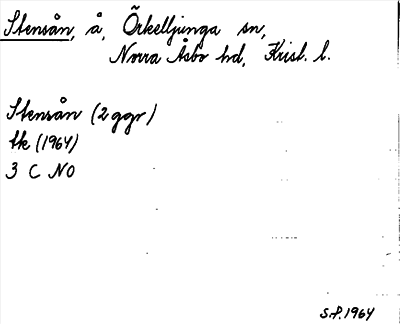 Stensån, å, Örkelljunga sn,
Norra Åsbo hd, Krist. l.
Stensån (2 ggr)
tk (1964)
3 C NO
S.P. 1964